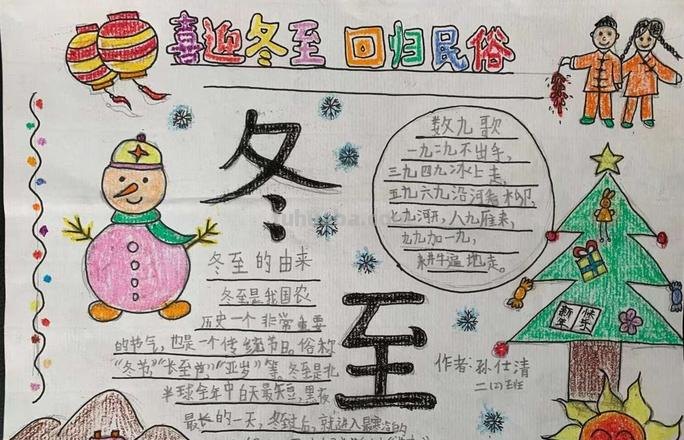 喜迎冬至 回归民俗
冬至
数九歌
一九二九不出手,
三九四九冰上走,
五九六九沿河看柳,
七九河开,八九雁来,
九九加一九,
耕牛遍地走。
冬至的由来
冬至是我国农
历史一个非常重要
的节气,也是一个传统节日。俗称
“冬节”“长至节”“亚岁”等,冬至是北
半球全年中白天最短,黑夜
最长的一天,冬至过后,就进入最寒冷的
新年
快乐
作者:孙仕清
二(2)班